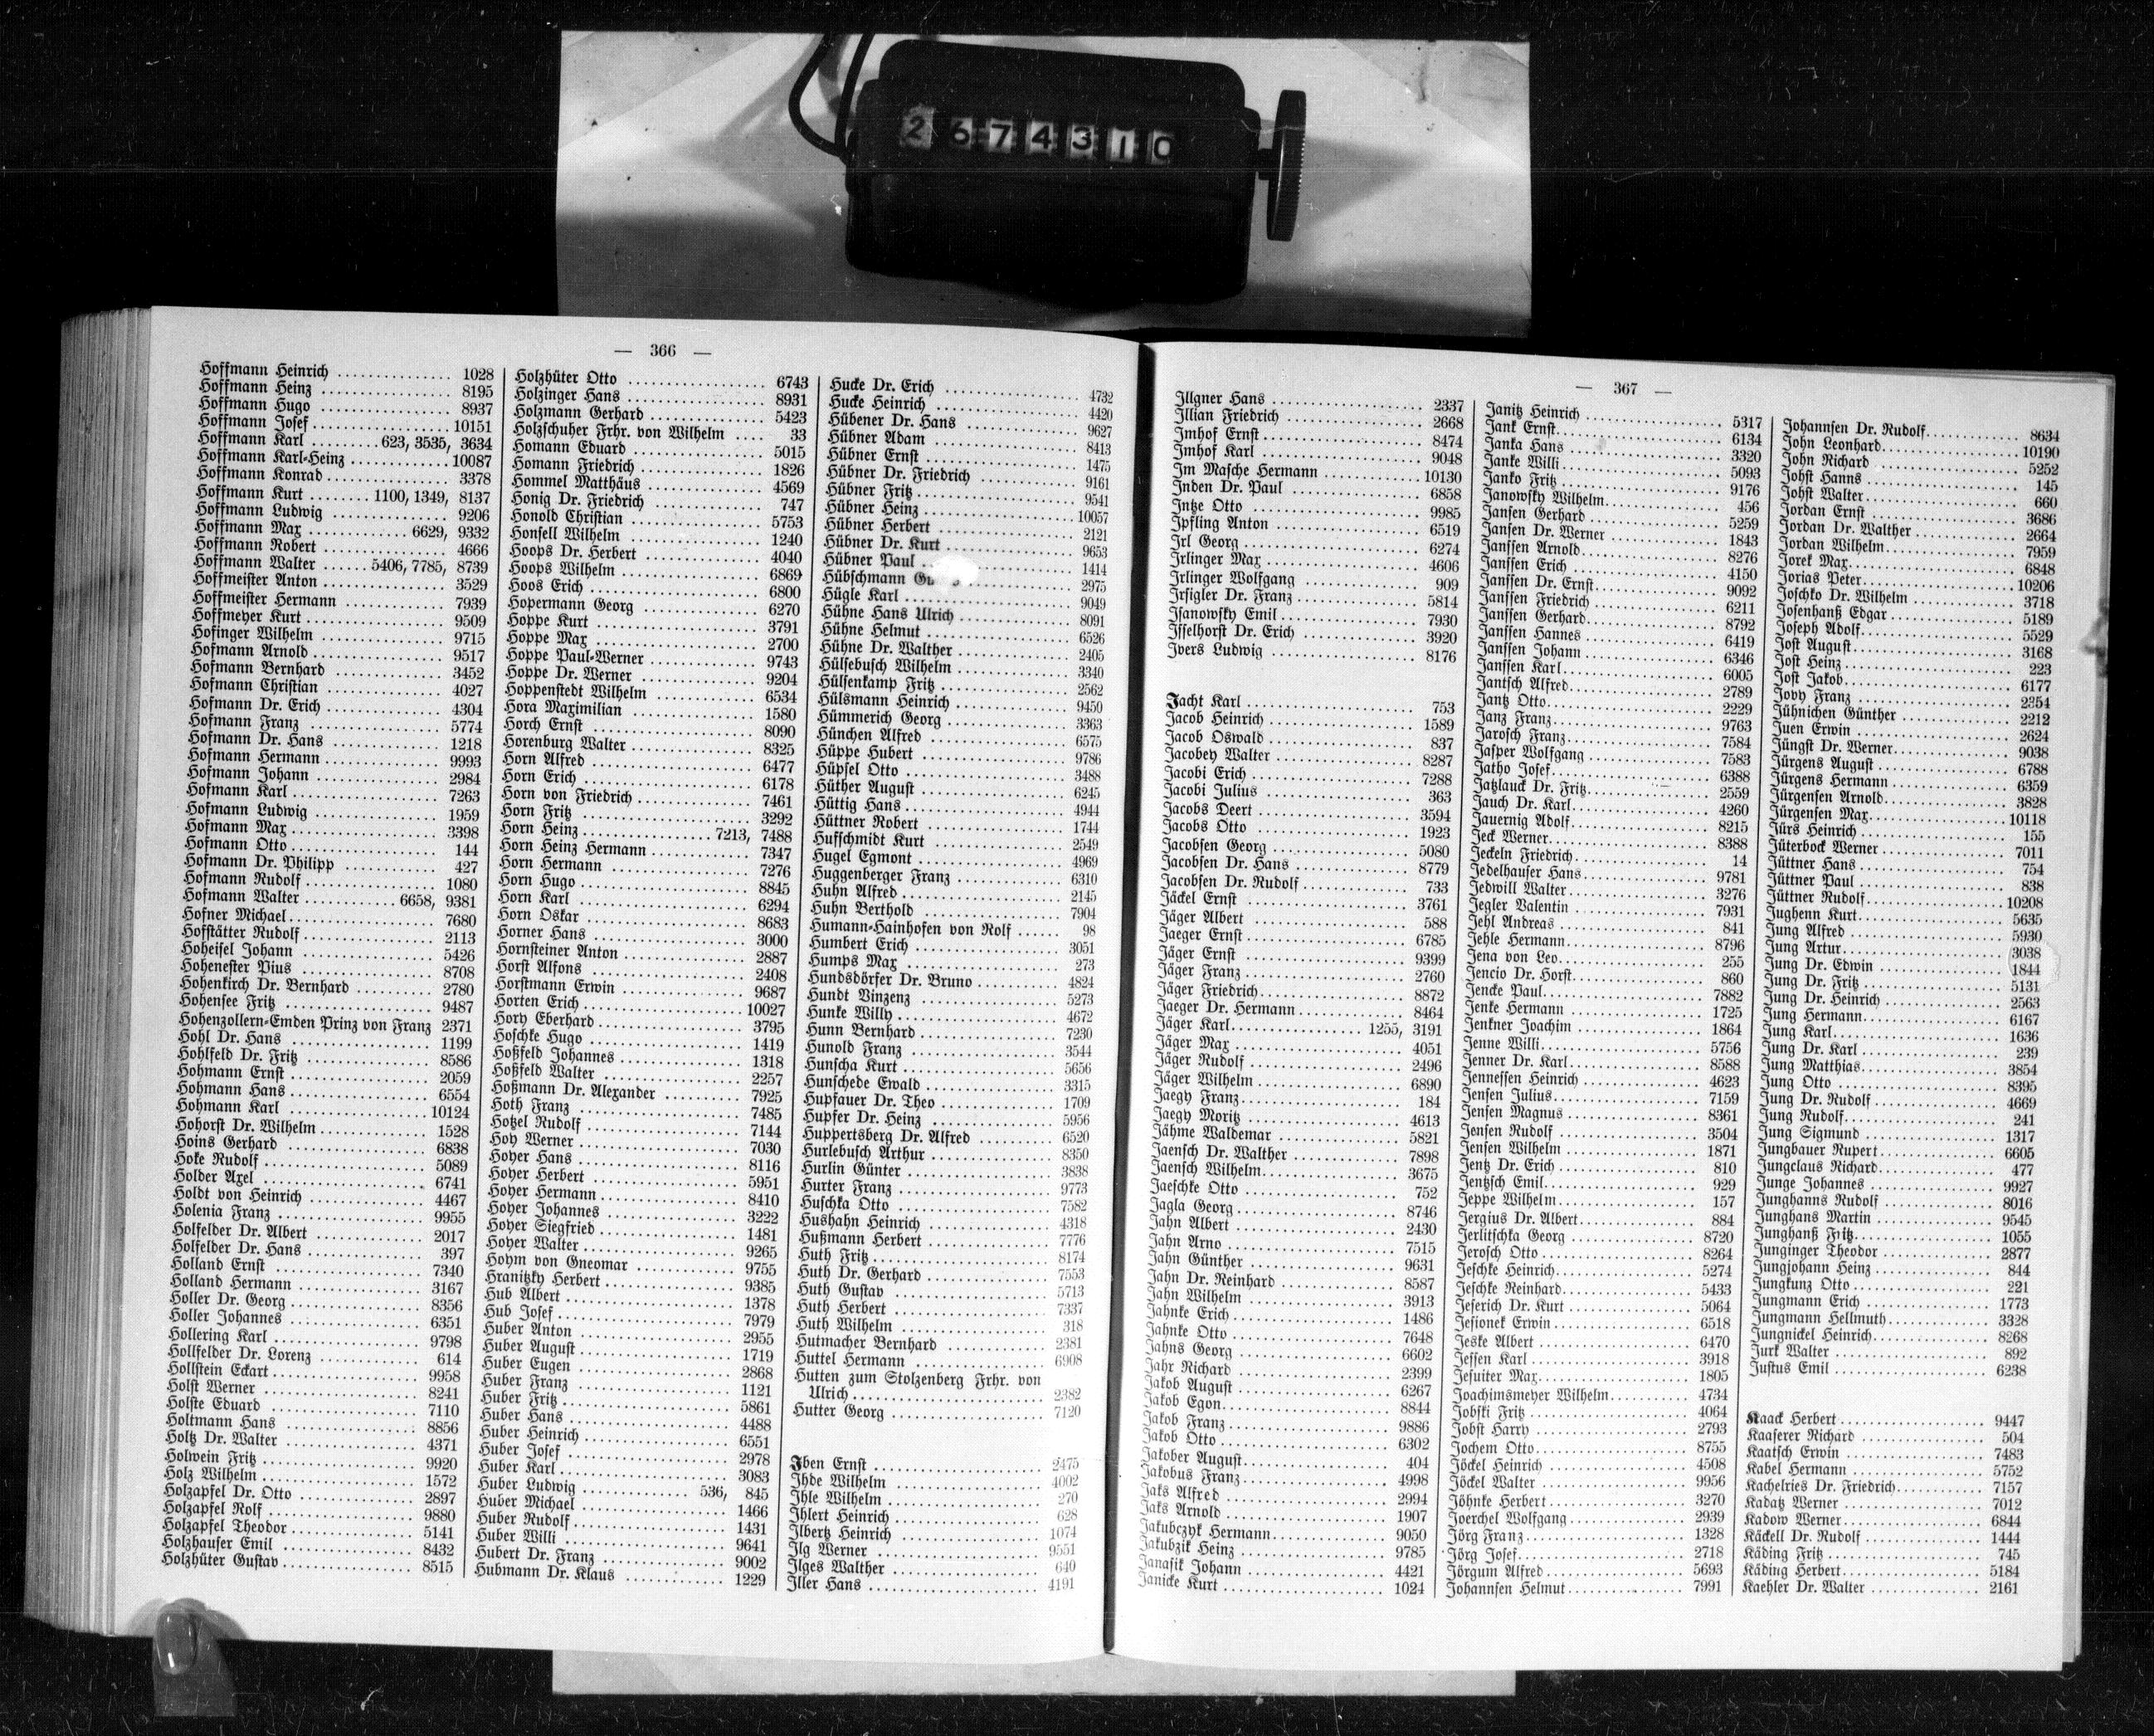 2674310
— 366 —
Hoffmann Heinrich ................ 1028
Hoffmann Heinz ................ 8195
Hoffmann Hugo ................ 8937
Hoffmann Josef ................ 10151
Hoffmann Karl ......... 623, 3535, 3634
Hoffmann Karl-Heinz ............ 10087
Hoffmann Konrad ................ 3378
Hoffmann Kurt ....... 1100, 1349, 8137
Hoffmann Ludwig ................ 9206
Hoffmann Max ............ 6629, 9332
Hoffmann Robert ................ 4666
Hoffmann Walter ...... 5406, 7785, 8739
Hoffmeister Anton ................ 3529
Hoffmeister Hermann ............ 7939
Hoffmeyer Kurt ................ 9509
Hofinger Wilhelm ................ 9715
Hofmann Arnold ................ 9517
Hofmann Bernhard ............ 3452
Hofmann Christian ............ 4027
Hofmann Dr. Erich ............ 4304
Hofmann Franz ................ 5774
Hofmann Dr. Hans ............ 1218
Hofmann Hermann ............ 9993
Hofmann Johann ................ 2984
Hofmann Karl ................ 7263
Hofmann Ludwig ................ 1959
Hofmann Max ................ 3398
Hofmann Otto ................ 144
Hofmann Dr. Philipp ............ 427
Hofmann Rudolf ................ 1080
Hofmann Walter ............ 6658, 9381
Hofner Michael ................ 7680
Hofstätter Rudolf ................ 2113
Hoheisel Johann ................ 5426
Hohenester Pius ................ 8708
Hohenkirch Dr. Bernhard ........ 2780
Hohensee Fritz ................ 9487
Hohenzollern-Emden Prinz von Franz 2371
Hohl Dr. Hans ................ 1199
Hohlfeld Dr. Fritz ............ 8586
Hohmann Ernst ................ 2059
Hohmann Hans ................ 6554
Hohmann Karl ................ 10124
Hohorst Dr. Wilhelm ............ 1528
Hoins Gerhard ................ 6838
Hoke Rudolf ................ 5089
Holder Axel ................ 6741
Holdt von Heinrich ............ 4467
Holenia Franz ................ 9955
Holfelder Dr. Albert ............ 2017
Holfelder Dr. Hans ............ 397
Holland Ernst ................ 7340
Holland Hermann ............ 3167
Holler Dr. Georg ............ 8356
Holler Johannes ............ 6351
Hollering Karl ................ 9798
Hollfelder Dr. Lorenz ............ 614
Hollstein Eckart ............ 9958
Holst Werner ................ 8241
Holste Eduard ................ 7110
Holtmann Hans ................ 8856
Holtz Dr. Walter ............ 4371
Holwein Fritz ................ 9920
Holz Wilhelm ................ 1572
Holzapfel Dr. Otto ............ 2897
Holzapfel Rolf ................ 9880
Holzapfel Theodor ............ 5141
Holzhauser Emil ............ 8432
Holzhüter Gustav ............ 8515
Holzhüter Otto ................ 6743
Holzinger Hans ................ 8931
Holzmann Gerhard ............ 5423
Holzschuher Frhr. von Wilhelm .... 33
Homann Eduard ................ 5015
Homann Friedrich ............ 1826
Hommel Matthäus ............ 4569
Honig Dr. Friedrich ............ 747
Honold Christian ............ 5753
Honsell Wilhelm ............ 1240
Hoops Dr. Herbert ............ 4040
Hoops Wilhelm ................ 6869
Hoos Erich ................ 6800
Hopermann Georg ............ 6270
Hoppe Kurt ................ 3791
Hoppe Max ................ 2700
Hoppe Paul-Werner ............ 9743
Hoppe Dr. Werner ............ 9204
Hoppenstedt Wilhelm ............ 6534
Hora Maximilian ............ 1580
Horch Ernst ................ 8090
Horenburg Walter ............ 8325
Horn Alfred ................ 6477
Horn Erich ................ 6178
Horn von Friedrich ............ 7461
Horn Fritz ................ 3292
Horn Heinz ................ 7213, 7488
Horn Heinz Hermann ............ 7347
Horn Hermann ................ 7276
Horn Hugo ................ 8845
Horn Karl ................ 6294
Horn Oskar ................ 8683
Horner Hans ................ 3000
Hornsteiner Anton ............ 2887
Horst Alfons ................ 2408
Horstmann Erwin ............ 9687
Horten Erich ................ 10027
Hory Eberhard ................ 3795
Hoschke Hugo ................ 1419
Hoßfeld Johannes ............ 1318
Hoßfeld Walter ............ 2257
Hoßmann Dr. Alexander ........ 7925
Hoth Franz ................ 7485
Hotzel Rudolf ................ 7144
Hoy Werner ................ 7030
Hoyer Hans ................ 8116
Hoyer Herbert ................ 5951
Hoyer Hermann ............ 8410
Hoyer Johannes ............ 3222
Hoyer Siegfried ............ 1481
Hoyer Walter ................ 9265
Hoym von Gneomar ............ 9755
Hranitzky Herbert ............ 9385
Hub Albert ................ 1378
Hub Josef ................ 7979
Huber Anton ................ 2955
Huber August ................ 1719
Huber Eugen ................ 2868
Huber Franz ................ 1121
Huber Fritz ................ 5861
Huber Hans ................ 4488
Huber Heinrich ............ 6551
Huber Josef ................ 2978
Huber Karl ................ 3083
Huber Ludwig ................ 536, 845
Huber Michael ................ 1466
Huber Rudolf ................ 1431
Huber Willi ................ 9641
Hubert Dr. Franz ............ 9002
Hubmann Dr. Klaus ............ 1229
Hucke Dr. Erich ................ 4732
Hucke Heinrich ................ 4420
Hübener Dr. Hans ............ 9627
Hübner Adam ................ 8413
Hübner Ernst ................ 1475
Hübner Dr. Friedrich ............ 9161
Hübner Fritz ................ 9541
Hübner Heinz ................ 10057
Hübner Herbert ................ 2121
Hübner Dr. Kurt ................ 9653
Hübner Paul ................ 1414
Hübschmann ................ 2975
Hügle Karl ................ 9049
Hühne Hans Ulrich ............ 8091
Hühne Helmut ................ 6526
Hühne Dr. Walther ............ 2405
Hülsebusch Wilhelm ............ 3340
Hülsenkamp Fritz ............ 2562
Hülsmann Heinrich ............ 9450
Hümmerich Georg ............ 3363
Hünchen Alfred ................ 6575
Hüppe Hubert ................ 9786
Hüpsel Otto ................ 3488
Hüther August ................ 6245
Hüttig Hans ................ 4944
Hüttner Robert ................ 1744
Hufschmidt Kurt ............ 2549
Hugel Egmont ................ 4969
Huggenberger Franz ............ 6310
Huhn Alfred ................ 2145
Huhn Berthold ................ 7904
Humann-Hainhofen von Rolf ...... 98
Humbert Erich ................ 3051
Humps Max ................ 273
Hundsdörfer Dr. Bruno ............ 4824
Hundt Vinzenz ................ 5273
Hunke Willy ................ 4672
Hunn Bernhard ................ 7230
Hunold Franz ................ 3544
Hunscha Kurt ................ 5656
Hunschede Ewald ............ 3315
Hupfauer Dr. Theo ............ 1709
Hupfer Dr. Heinz ............ 5956
Huppertsberg Dr. Alfred ........ 6520
Hurlebusch Arthur ............ 8350
Hurlin Günter ................ 3838
Hurter Franz ................ 9773
Huschka Otto ................ 7582
Hushahn Heinrich ............ 4318
Hußmann Herbert ............ 7776
Huth Fritz ................ 8174
Huth Dr. Gerhard ............ 7553
Huth Gustav ................ 5713
Huth Herbert ................ 7337
Huth Wilhelm ................ 318
Hutmacher Bernhard ............ 2381
Huttel Hermann ............ 6908
Hutten zum Stolzenberg Frhr. von
Ulrich ................ 2382
Hutter Georg ................ 7120
Iben Ernst ................ 2475
Ihde Wilhelm ................ 4002
Ihle Wilhelm ................ 270
Ihlert Heinrich ................ 628
Ilbertz Heinrich ............ 1074
Ilg Werner ................ 9551
Ilges Walther ................ 640
Iller Hans ................ 4191
— 367 —
Illgner Hans ................ 2337
Illian Friedrich ................ 2668
Imhof Ernst ................ 8474
Imhof Karl ................ 9048
Im Masche Hermann ............ 10130
Inden Dr. Paul ................ 6858
Intze Otto ................ 9985
Ipfling Anton ................ 6519
Irl Georg ................ 6274
Irlinger Max ................ 4606
Irlinger Wolfgang ............ 909
Irsigler Dr. Franz ............ 5814
Isanowsky Emil ................ 7930
Isselhorst Dr. Erich ............ 3920
Ivers Ludwig ................ 8176
Jacht Karl ................ 753
Jacob Heinrich ................ 1589
Jacob Oswald ................ 837
Jacobey Walter ................ 8287
Jacobi Erich ................ 7288
Jacobi Julius ................ 363
Jacobs Deert ................ 3594
Jacobs Otto ................ 1923
Jacobsen Georg ................ 5080
Jacobsen Dr. Hans ............ 8779
Jacobsen Dr. Rudolf ............ 733
Jäckel Ernst ................ 3761
Jäger Albert ................ 588
Jaeger Ernst ................ 6785
Jäger Ernst ................ 9399
Jäger Franz ................ 2760
Jäger Friedrich ................ 8872
Jaeger Dr. Hermann ............ 8464
Jäger Karl ................ 1255, 3191
Jäger Max ................ 4051
Jäger Rudolf ................ 2496
Jäger Wilhelm ................ 6890
Jaegy Franz ................ 184
Jaegy Moritz ................ 4613
Jähme Waldemar ............ 5821
Jaensch Dr. Walther ............ 7898
Jaensch Wilhelm ............ 3675
Jaeschke Otto ................ 752
Jagla Georg ................ 8746
Jahn Albert ................ 2430
Jahn Arno ................ 7515
Jahn Günther ................ 9631
Jahn Dr. Reinhard ............ 8587
Jahn Wilhelm ................ 3913
Jahnke Erich ................ 1486
Jahnke Otto ................ 7648
Jahns Georg ................ 6602
Jahr Richard ................ 2399
Jakob August ................ 6267
Jakob Egon ................ 8844
Jakob Franz ................ 9886
Jakob Otto ................ 6302
Jakober August ................ 404
Jakobus Franz ................ 4998
Jaks Alfred ................ 2994
Jaks Arnold ................ 1907
Jakubczyk Hermann ............ 9050
Jakubzik Heinz ................ 9785
Janasik Johann ................ 4421
Janicke Kurt ................ 1024
Janitz Heinrich ................ 5317
Jank Ernst ................ 6134
Janka Hans ................ 3320
Janke Willi ................ 5093
Janko Fritz ................ 9176
Janowsky Wilhelm ............ 456
Jansen Gerhard ................ 5259
Jansen Dr. Werner ............ 1843
Janssen Arnold ................ 8276
Janssen Erich ................ 4150
Janssen Dr. Ernst ............ 9092
Janssen Friedrich ............ 6211
Janssen Gerhard ............ 8792
Janssen Hannes ............ 6419
Janssen Johann ............ 6346
Janssen Karl ................ 6005
Jantsch Alfred ................ 2789
Jantz Otto ................ 2229
Janz Franz ................ 9763
Jarosch Franz ................ 7584
Jasper Wolfgang ............ 7583
Jatho Josef ................ 6388
Jatzlauck Dr. Fritz ............ 2559
Jauch Dr. Karl ................ 4260
Jauernig Adolf ................ 8215
Jeck Werner ................ 8388
Jeckeln Friedrich ................ 14
Jedelhauser Hans ............ 9781
Jedwill Walter ................ 3276
Jegler Valentin ................ 7931
Jehl Andreas ................ 841
Jehle Hermann ................ 8796
Jena von Leo ................ 255
Jencio Dr. Horst ................ 860
Jencke Paul ................ 7882
Jenke Hermann ................ 1725
Jenkner Joachim ............ 1864
Jenne Willi ................ 5756
Jenner Dr. Karl ................ 8588
Jennessen Heinrich ............ 4623
Jensen Julius ................ 7159
Jensen Magnus ................ 8361
Jensen Rudolf ................ 3504
Jensen Wilhelm ................ 1871
Jentz Dr. Erich ................ 810
Jentzsch Emil ................ 929
Jeppe Wilhelm ................ 157
Jergius Dr. Albert ............ 884
Jerlitschka Georg ............ 8720
Jerosch Otto ................ 8264
Jeschke Heinrich ............ 5274
Jeschke Reinhard ............ 5433
Jeserich Dr. Kurt ............ 5064
Jesionek Erwin ................ 6518
Jeske Albert ................ 6470
Jessen Karl ................ 3918
Jesuiter Max ................ 1805
Joachimsmeyer Wilhelm ........ 4734
Jobski Fritz ................ 4064
Jobst Harry ................ 2793
Jochem Otto ................ 8755
Jöckel Heinrich ................ 4508
Jöckel Walter ................ 9956
Jöhnke Herbert ................ 3270
Joerchel Wolfgang ............ 2939
Jörg Franz ................ 1328
Jörg Josef ................ 2718
Jörgum Alfred ................ 5693
Johannsen Helmut ............ 7991
Johannsen Dr. Rudolf ............ 8634
John Leonhard ................ 10190
John Richard ................ 5252
Johst Hanns ................ 145
Johst Walter ................ 660
Jordan Ernst ................ 3686
Jordan Dr. Walther ............ 2664
Jordan Wilhelm ................ 7959
Jorek Max ................ 6848
Jorias Peter ................ 10206
Joschko Dr. Wilhelm ............ 3718
Josenhanß Edgar ............ 5189
Joseph Adolf ................ 5529
Jost August ................ 3168
Jost Heinz ................ 223
Jost Jakob ................ 6177
Jovy Franz ................ 2354
Jühnichen Günther ............ 2212
Juen Erwin ................ 2624
Jüngst Dr. Werner ............ 9038
Jürgens August ................ 6788
Jürgens Hermann ............ 6359
Jürgensen Arnold ............ 3828
Jürgensen Max ................ 10118
Jürs Heinrich ................ 155
Jüterbock Werner ............ 7011
Jüttner Hans ................ 754
Jüttner Paul ................ 838
Jüttner Rudolf ................ 10208
Jughenn Kurt ................ 5635
Jung Alfred ................ 5930
Jung Artur ................ 3038
Jung Dr. Edwin ................ 1844
Jung Dr. Fritz ................ 5131
Jung Dr. Heinrich ............ 2563
Jung Hermann ................ 6167
Jung Karl ................ 1636
Jung Dr. Karl ................ 239
Jung Matthias ................ 3854
Jung Otto ................ 8395
Jung Dr. Rudolf ................ 4669
Jung Rudolf ................ 241
Jung Sigmund ................ 1317
Jungbauer Rupert ............ 6605
Jungclaus Richard ............ 477
Junge Johannes ................ 9927
Junghanns Rudolf ............ 8016
Junghans Martin ............ 9545
Junghanß Fritz ................ 1055
Junginger Theodor ............ 2877
Jungjohann Heinz ............ 844
Jungkunz Otto ................ 221
Jungmann Erich ................ 1773
Jungmann Hellmuth ............ 3328
Jungnickel Heinrich ............ 8268
Jurk Walter ................ 892
Justus Emil ................ 6238
Kaack Herbert ................ 9447
Kaaserer Richard ............ 504
Kaatsch Erwin ................ 7483
Kabel Hermann ................ 5752
Kachelries Dr. Friedrich ........ 7157
Kadatz Werner ................ 7012
Kadow Werner ................ 6844
Käckell Dr. Rudolf ............ 1444
Käding Fritz ................ 745
Käding Herbert ................ 5184
Kaehler Dr. Walter ............ 2161